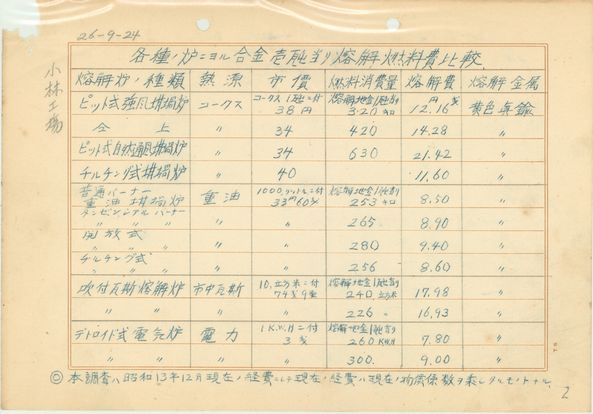 26-9-24
小林工場
各種ノ炉ニヨル合金壱瓲当リ熔解燃料費比較
熔解炉ノ種類 熱源 市價 燃料消費量 熔解費 熔解金属
ピット式強風坩堝炉 コークス コークス1瓲ニ付 38円 熔解地金1瓲当リ 320キロ 12円16銭 黄色真鍮
仝上 〃 34 420 14.28 〃
ピット式自然通風坩堝炉 〃 34 630 21.42 〃
チルチング式坩堝炉 〃 40 11.60 〃
普通バーナー
重油坩堝炉 重油 1000リットルニ付 33円60銭 熔解地金1瓲当リ 253キロ 8.50 〃
タンゼンシアルバーナー
〃 〃 〃 〃 265 8.90 〃
開放式 〃 〃 280 9.40 〃
チルチング式
〃 〃 〃 256 8.60 〃
吹付瓦斯熔解炉 市中瓦斯 10立方米ニ付 74銭9厘 熔解地金1瓲当リ 240立方米 17.98 〃
〃 〃 〃 〃 226〃 16.93 〃
デトロイド式電気炉 電力 1K.W.Hニ付 3銭 熔解地金1瓲当リ 260KWH 7.80 〃
〃 〃 〃 〃 300. 9.00 〃
◎本調査ハ昭和13年12月現在ノ経費ニシテ現在ノ経費ハ現在ノ物價係数ヲ乗じタルモノトナル
2